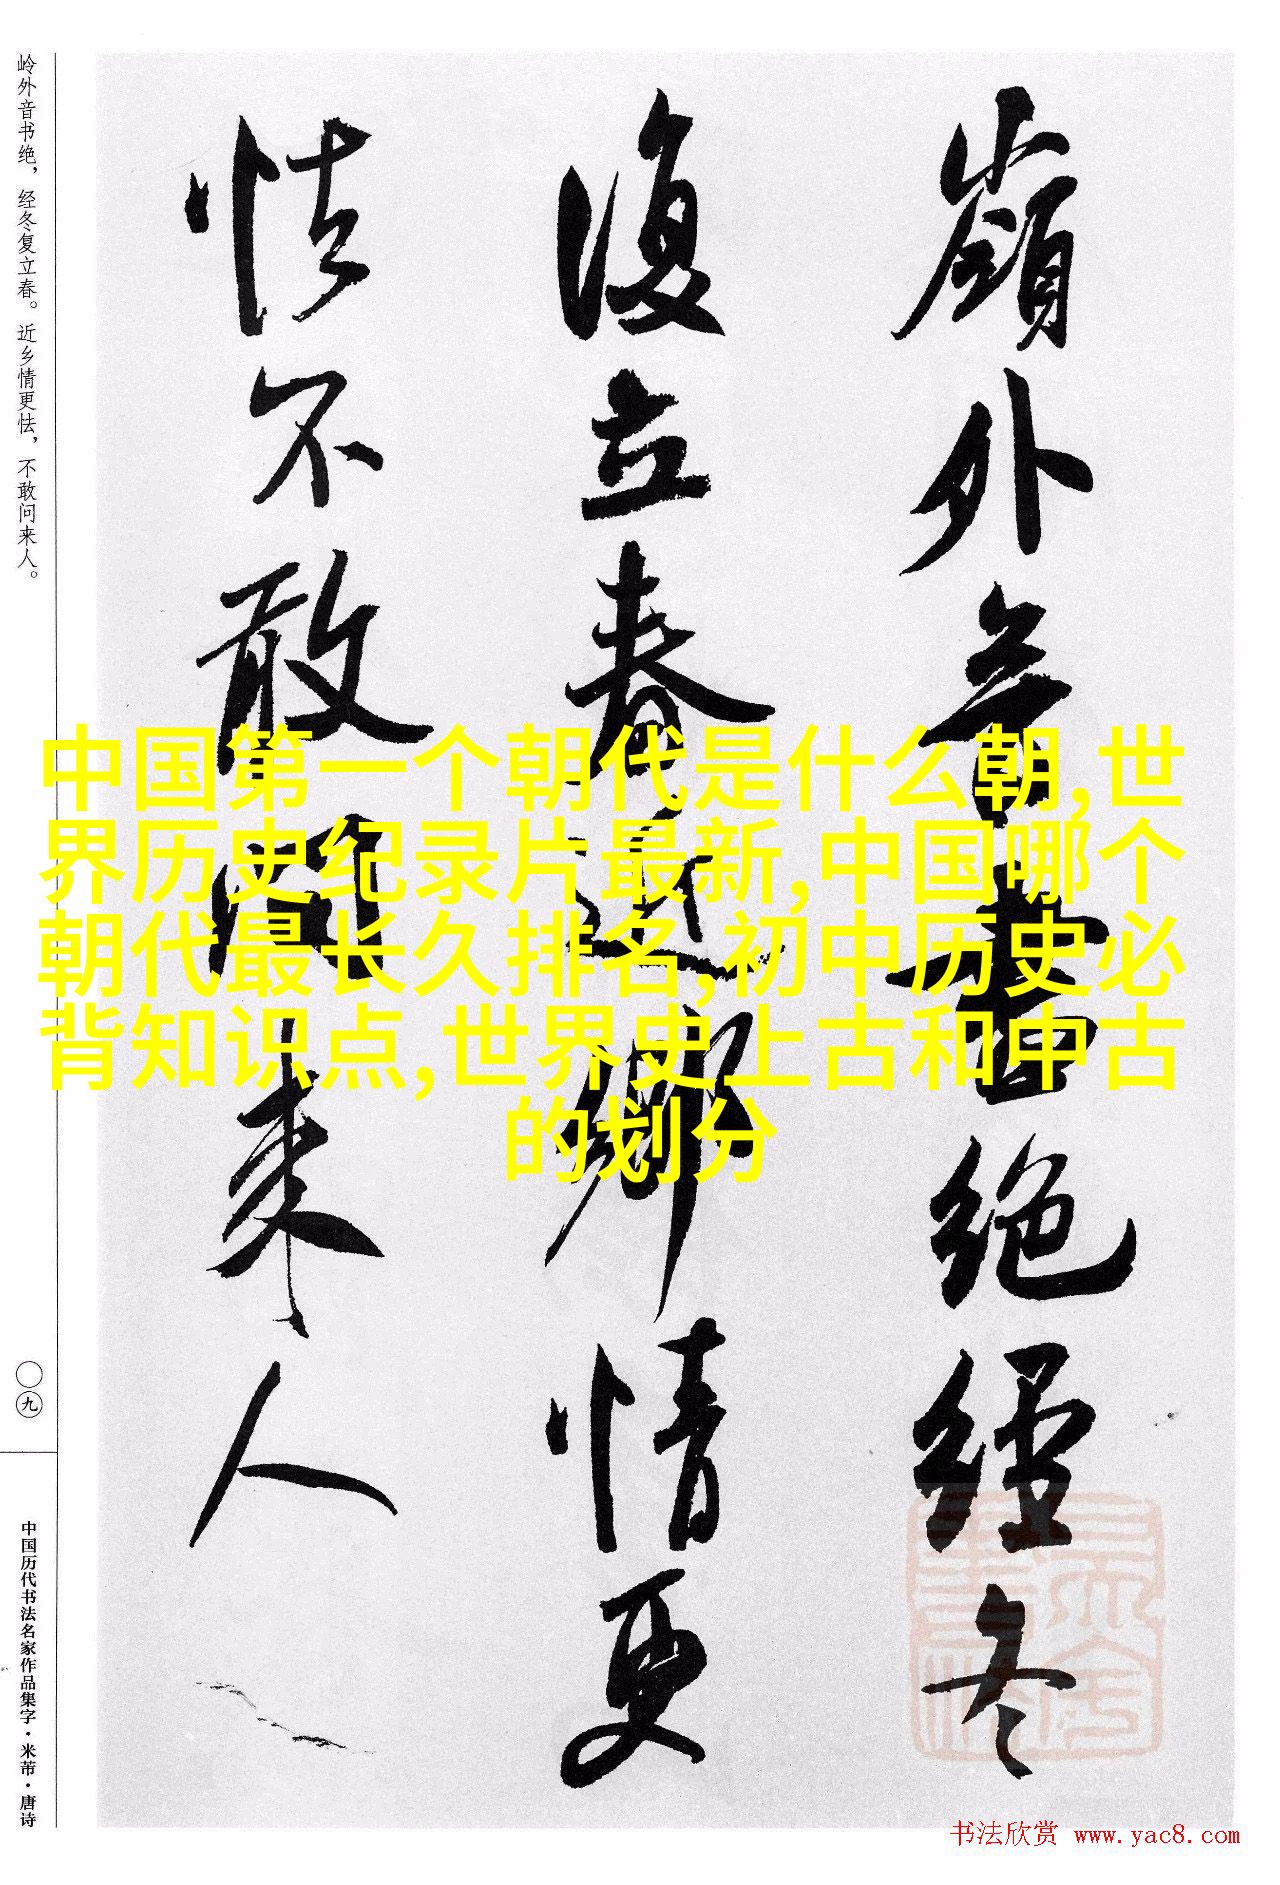 嶺外音書絶經冬
復立春近鄉情更
怯不敢問來人
岭外音书绝，经冬复立春。近乡情更怯，不敢问来人。
〇九
中国历代书法名家作品集字·米芾·唐诗
中国第一个朝代是什么朝,世
界历史纪录片最新,中国哪个
朝代最长久排名,初中历史必
背知识点,世界史上古和中古
的划分
书法欣赏 www.yac8.com